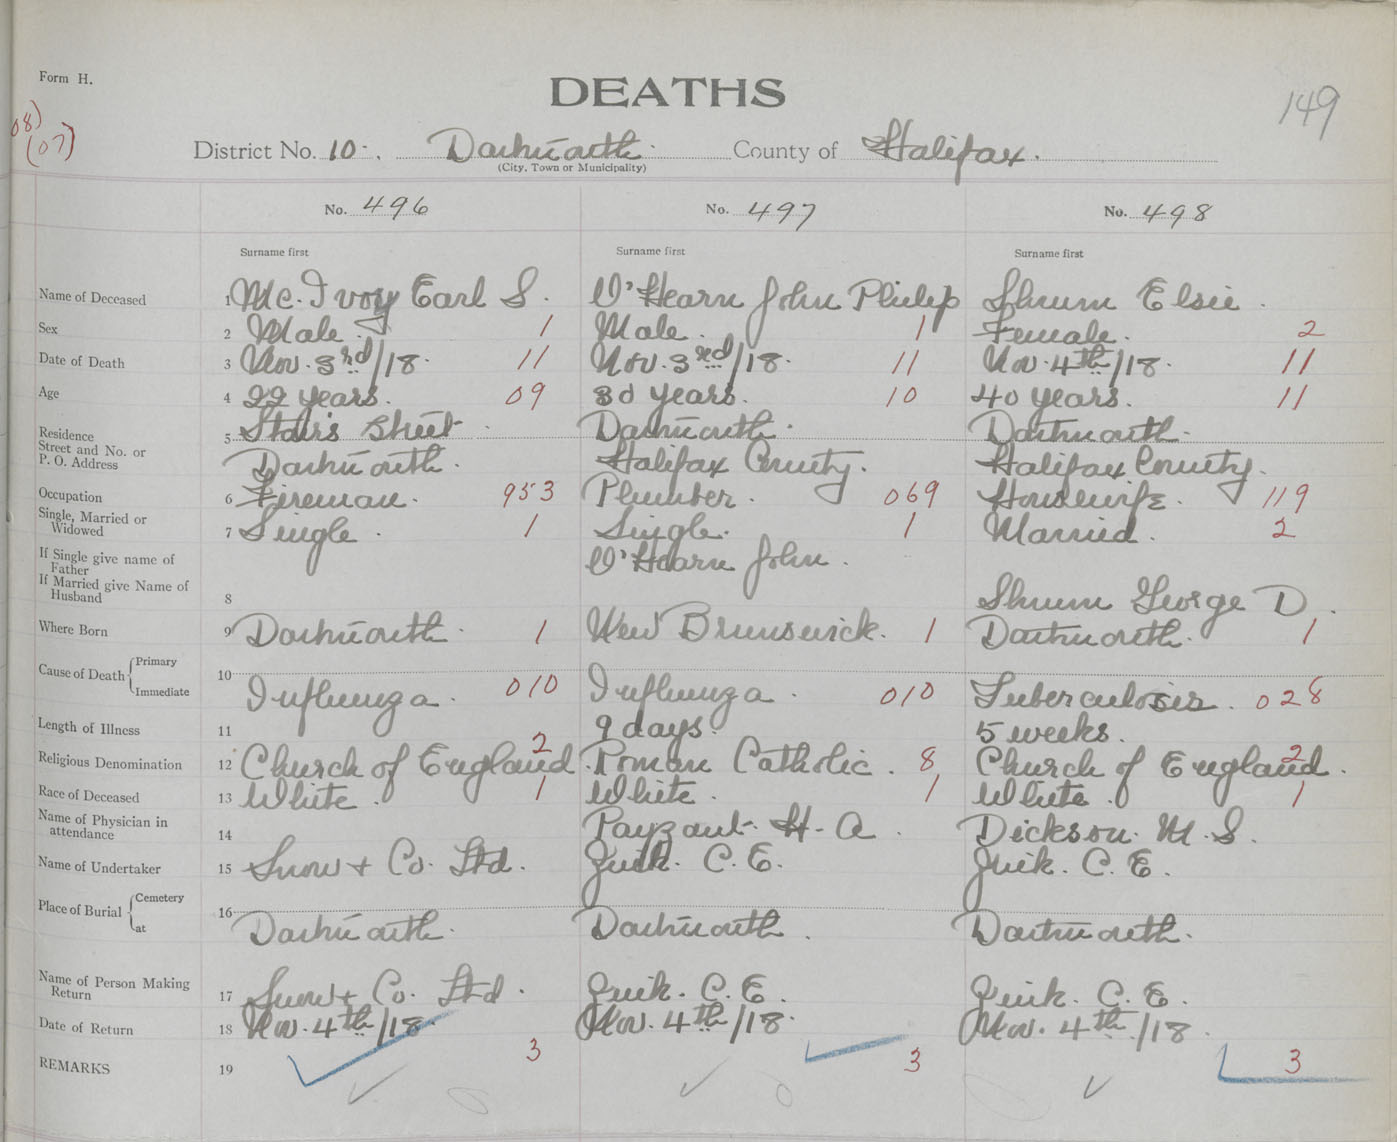 Form H.
DEATHS
149
08)
(07)
District No. 10. Dartmouth. County of Halifax.
(City, Town or Municipality)
No. 496 No. 497 No. 498
Surname first Surname first Surname first
Name of Deceased 1 Mc. Ivoy Earl S. O'Hearn John Philip Shrum Elsie.
Sex 2 Male. 1 Male. 1 Female. 2
Date of Death 3 Nov. 3rd/18. 11 Nov. 3rd/18. 11 Nov. 4th/18. 11
Age 4 22 years. 09 30 years. 10 40 years. 11
Residence 5 Stairs Street. Dartmouth. Dartmouth.
Street and No. or
P. O. Address Dartmouth. Halifax County. Halifax County.
Occupation 6 Fireman. 953 Plumber. 069 Housewife. 119
Single, Married or
Widowed 7 Single. 1 Single. 1 Married. 2
If Single give name of
Father O'Hearn John.
If Married give Name of
Husband 8 Shrum George D.
Where Born 9 Dartmouth. 1 New Brunswick. 1 Dartmouth. 1
Cause of Death Primary 10
Immediate Influenza. 010 Influenza. 010 Tuberculosis. 028
Length of Illness 11 9 days. 5 weeks.
Religious Denomination 12 Church of England 2 Roman Catholic. 8 Church of England. 2
Race of Deceased 13 White. 1 White. 1 White. 1
Name of Physician in
attendance 14 Payzant. H. A. Dickson. M. S.
Name of Undertaker 15 Snow + Co. Ltd. C. E. C. E.
Place of Burial Cemetery 16
at Dartmouth. Dartmouth. Dartmouth.
Name of Person Making
Return 17 Snow + Co. Ltd. C. E. C. E.
Date of Return 18 Nov. 4th/18. Nov. 4th/18. Nov. 4th/18.
REMARKS 19 3 3 3